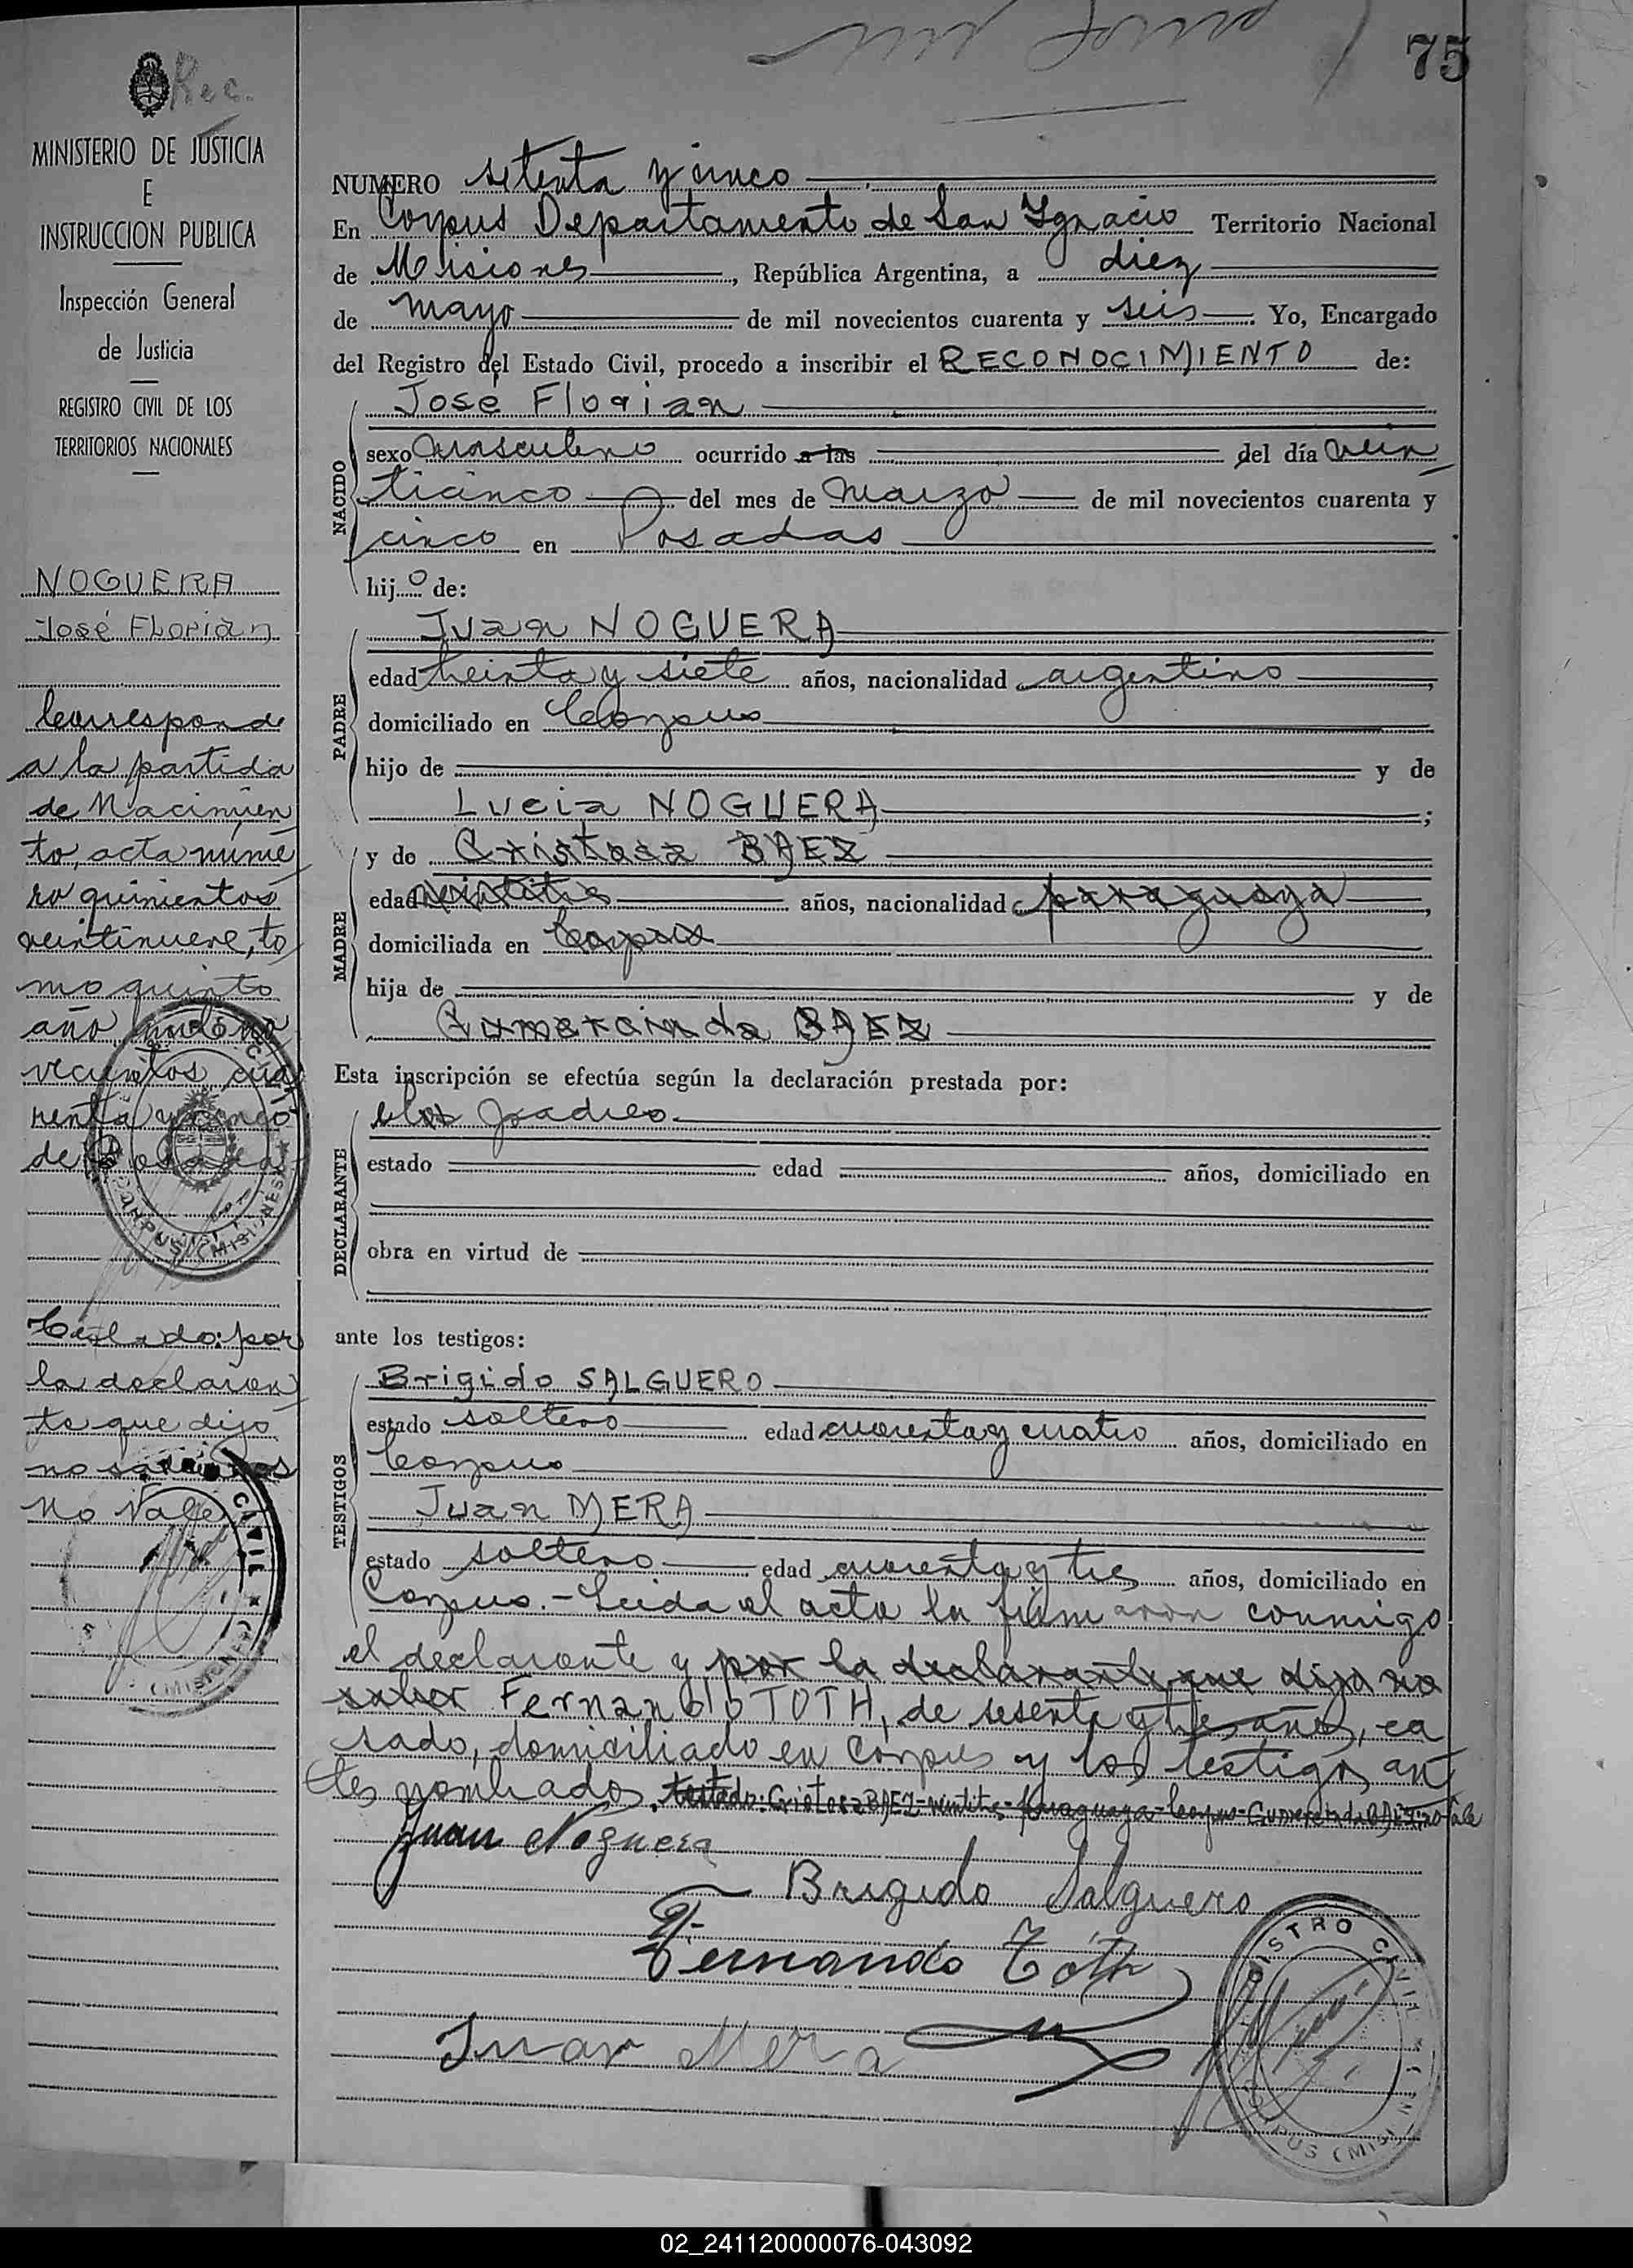 75
Rec.
MINISTERIO DE JUSTICIA
E
INSTRUCCION PUBLICA
Inspección General
de Justicia
REGISTRO CIVIL DE LOS
TERRITORIOS NACIONALES
NOGUERA
José Florian
Corresponde
a la partida
de Nacimien
to, acta núme
ro quinientos
veintinueve, to
mo quinto
año mil no
vecientos cua
renta y cinco
de Posadas
Testado: por
la declaran
te que dijo
no saber
No Vale
NUMERO setenta y cinco
En Corpus Departamento de San Ygnacio Territorio Nacional
de Misiones, República Argentina, a diez
de mayo de mil novecientos cuarenta y seis. Yo, Encargado
del Registro del Estado Civil, procedo a inscribir el RECONOCIMIENTO de:
José Florian
NACIDO
sexo masculino ocurrido a las del día vein
ticinco del mes de Marzo de mil novecientos cuarenta y
cinco en Posadas
hijo de:
PADRE
Juan NOGUERA
edad treinta y siete años, nacionalidad argentino,
domiciliado en Corpus
hijo de y de
Lucia NOGUERA;
MADRE
y de Cristosa BAEZ
edad veintitres años, nacionalidad paraguaya,
domiciliada en Corpus
hija de y de
Gumercinda BAEZ
Esta inscripción se efectúa según la declaración prestada por:
DECLARANTE
padres
estado edad años, domiciliado en
obra en virtud de
ante los testigos:
TESTIGOS
Brigido SALGUERO
estado soltero edad cuarenta y cuatro años, domiciliado en
Corpus
Juan MERA
estado soltero edad cuarenta y tres años, domiciliado en
Corpus.- Leida el acta la firmaron conmigo
el declarante y por la declarante que dijo no
saber Fernando TOTH, de sesenta y tres años, ca
sado, domiciliado en Corpus y los testigos an
tes nombrados. testado: Cristosa BAEZ-veintitres-Paraguaya-Corpus-Gumercinda BAEZ: no Vale
Juan Noguera
Brigido Salguero
Fernando Tóth
Juan Mera
REGISTRO CIVIL
CORPUS (MISIONES)
02_241120000076-043092